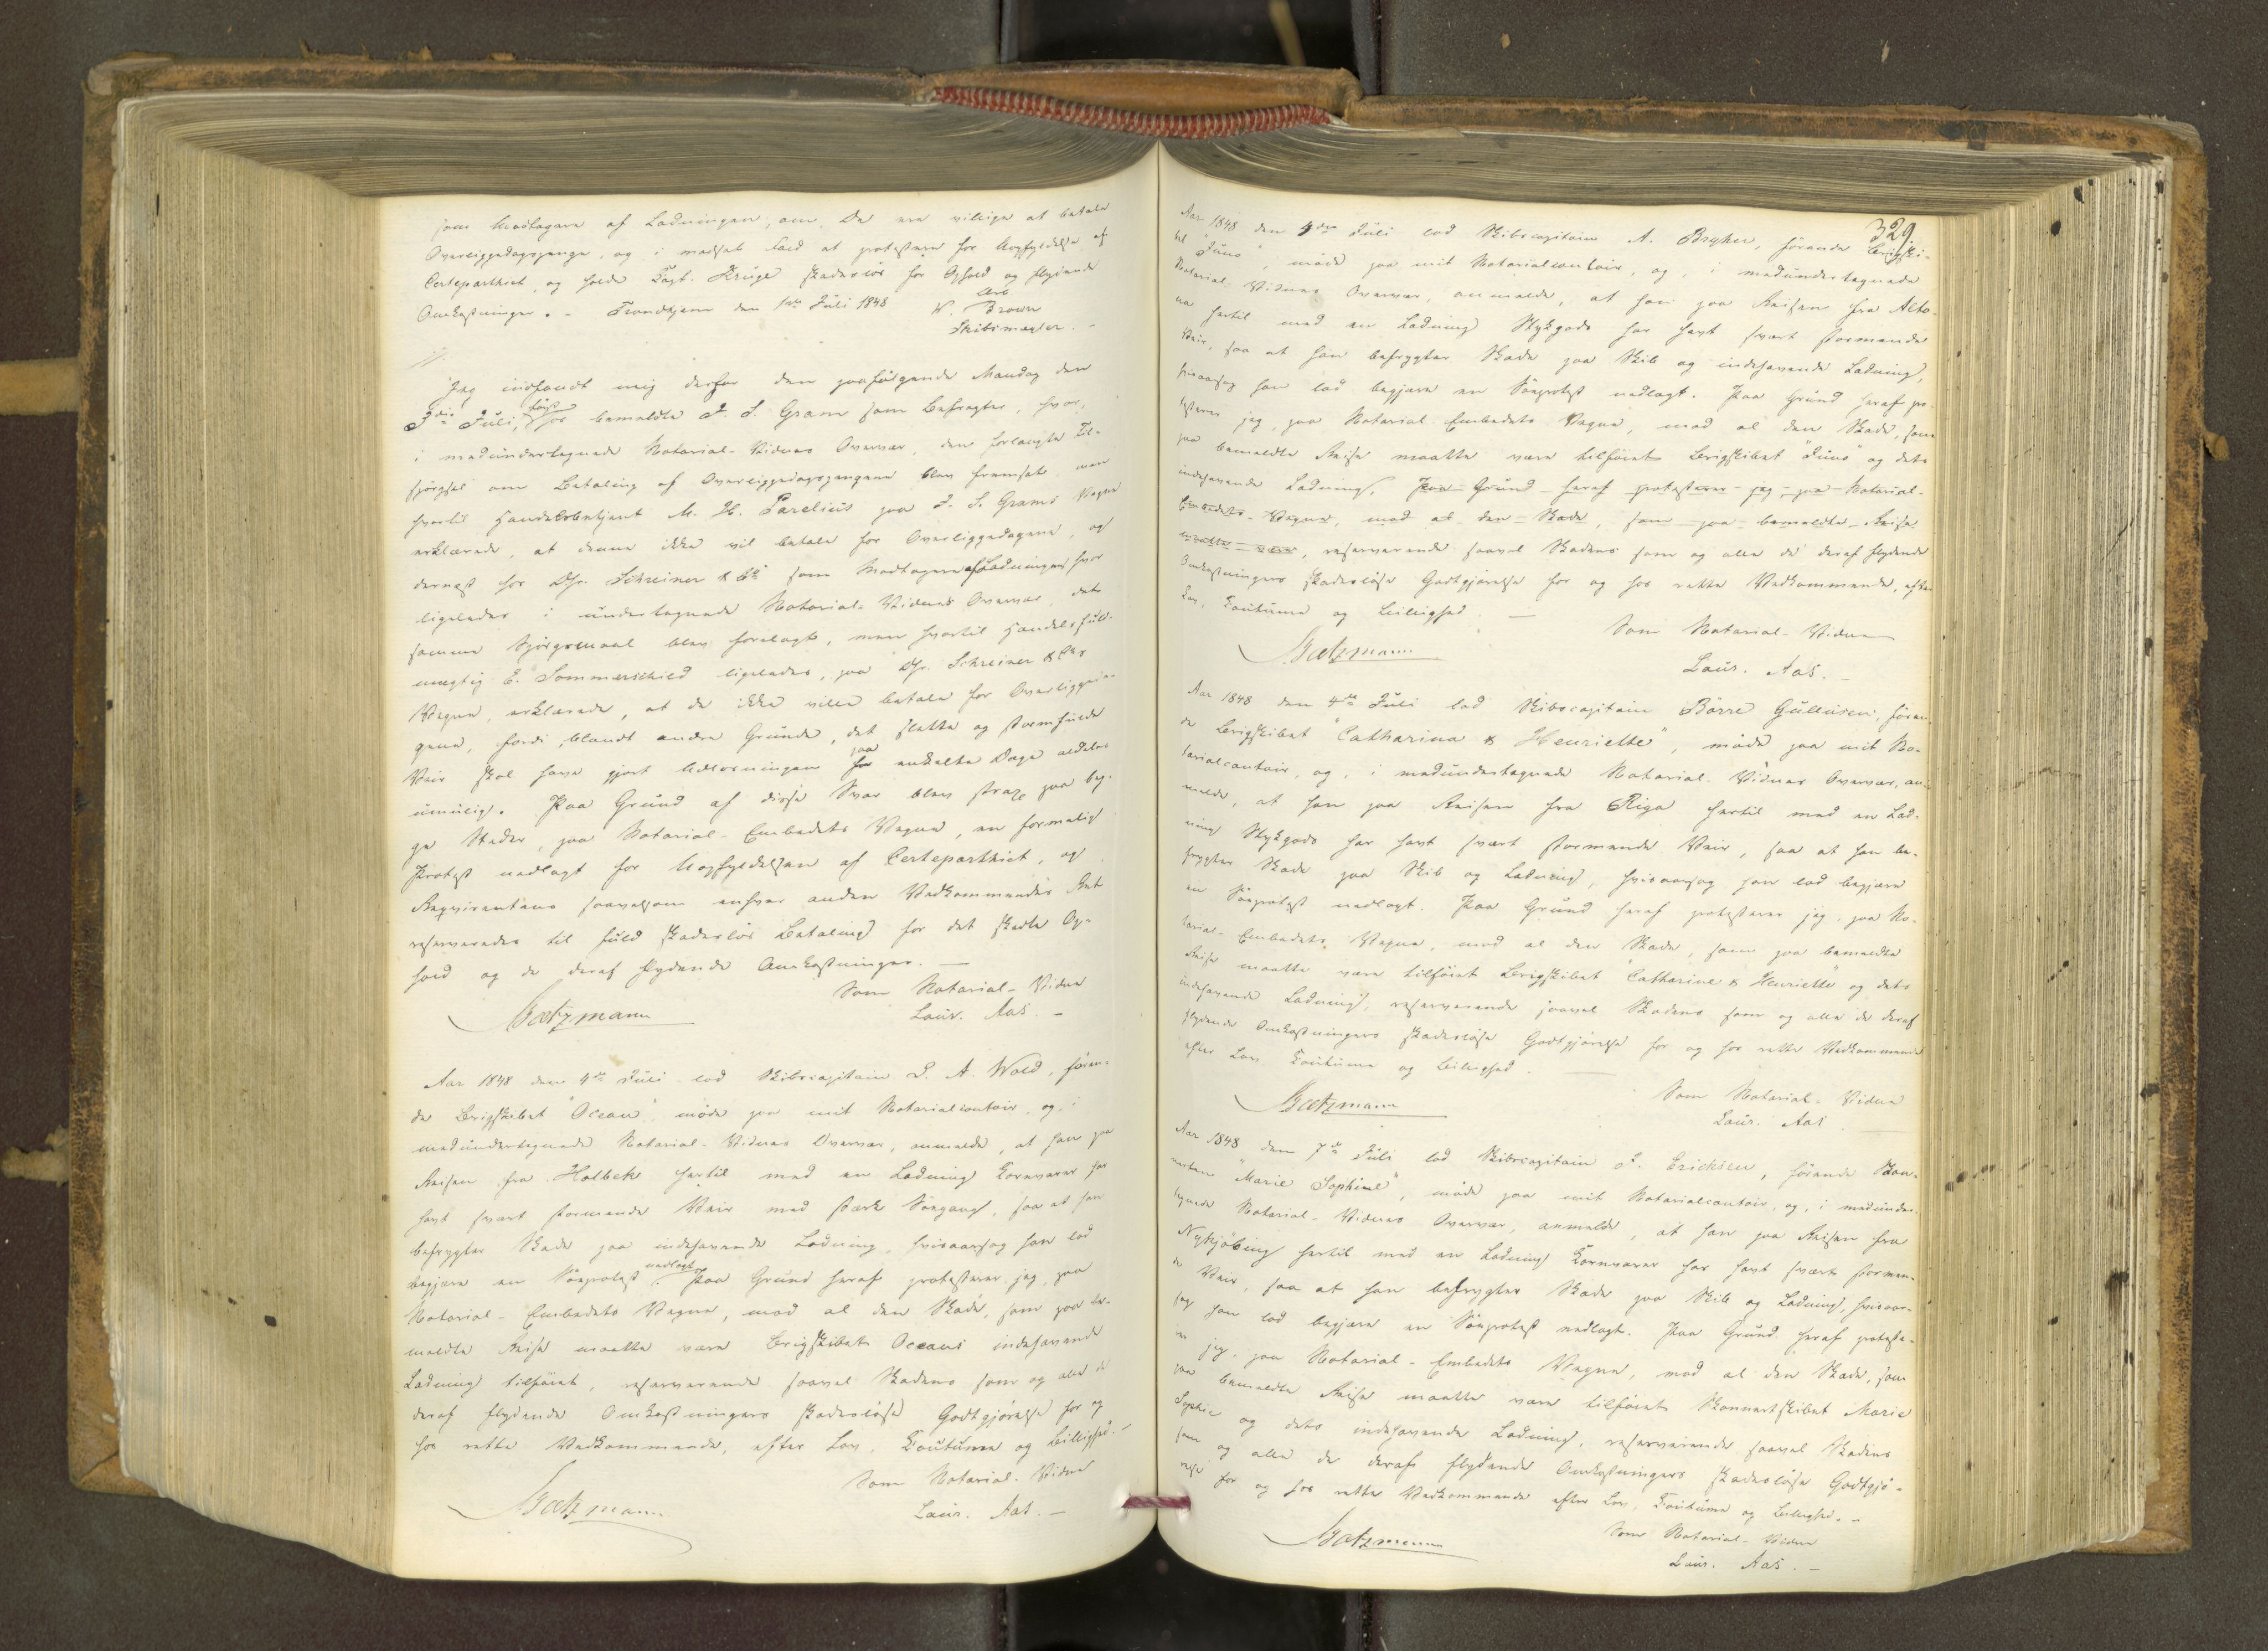 som Modtagere af Ladningen, om De ere villige at betale
Overliggedagspenge, og i modsat Fald at protestere for Uopfyldelse af
Certepartiet, og holde Capt. Krüge skadeslös for Ophold og flydende
Omkostninger. - Trondhjem den 1ste Juli 1848
W. Brown
Skibsmægler. -
Jeg indfandt mig derfor den paafölgende Mandag den
3die Juli, först hos bemeldte J. S. Gram som Befragter, hvor,
i medundertegnede Notarial-Vidnes Overvær, den forlangte Til-
spörgsel om Betaling af Overliggedagspengene blev fremsat men
hvortil Handelsbetjent M. H. Parelius paa J. S. Grams Vegne
erklærede, at denne ikke vil betale for Overliggedagene, og
dernæst hos Dhr. Schreiner & Co som Modtagere af Ladningen, hvor
ligeledes i undertegnede Notarial-Vidnes Overvær, det
samme Spörgsmaal blev forelagt, men hvortil Handelsfuld-
mægtig E. Sommerschild ligeledes, paa Dhr. Schreiner & Cos
Vegne, erklærede, at de ikke ville betale for Overliggein-
gene, fordi, blandt andre Grunde, det slette og stormfulde
Veir skal have gjort Udlosningen paa enkelte Dage aldeles
umulig. Paa Grund af disse Svar blev strax paa beg-
ge Steder, paa Notarial-Embedets Vegne, en formelig
Protest nedlagt for Uopfyldelsen af Certepartiet, og
Reqvirentens saavelsom enhver anden Vedkommendes Ret
reserveredes til fuld skadeslös Betaling for det skete Op-
hold og de deraf flydende Omkostninger. -
Som Notarial-Vidne
Baetzmann
Laur. Aas. -
Aar 1848 den 4de Juli lod Skibscapitain L. A. Wold, fören-
de Brigskibet "Ocean", möde paa mit Notarialcontoir, og, i
medundertegnede Notarial-Vidnes Overvær, anmelde, at han paa
Reisen fra Holbek hertil med en Ladning Kornvarer har
havt svært stormende Veir med stærk Söegang, saa at han
befrygter Skade paa indehavende Ladning, hvisaarsag han lod
begjære en Söeprotest nedlagt. Paa Grund heraf protesterer jeg, paa
Notarial-Embedets Vegne, mod al den Skade, som paa be-
meldte Reise maatte være Brigskibet Oceans indehavende
Ladning tilföiet, reserverende saavel Skadens som og alle de
deraf flydende Omkostningers skadeslöse Godtgjörelse for og
hos rette Vedkommende, efter Lov, Coutume og Billighed. -
Som Notarial-Vidne
Baetzmann
Laur. Aas. -
329
Aar 1848 den 4de Juli lod Skibscapitain A. Bryhn, förende Brigski-
bet "Juno", möde paa mit Notarialcontoir, og i medundertegnede
Notarial-Vidnes Overvær, anmelde, at han paa Reisen fra Alto-
na hertil med en Ladning Stykgods har havt svært stormende
Veir, saa at han befrygter Skade paa Skib og indehavende Ladning,
hvisaarsag han lod begjære en Söeprotest nedlagt. Paa Grund heraf pro-
testerer jeg, paa Notarial-Embedets Vegne, mod al den Skade, som
paa bemeldte Reise maatte være tilföiet Brigskibet "Juno" og dets
indehavende Ladning, Paa Grund heraf protesterer jeg, paa Notarial-
Embedets Vegne, mod al den Skade, som paa bemeldte Reise
maatte være, reserverende saavel Skadens som og alle de deraf flydende
Omkostningers skadeslöse Godtgjörelse for og hos rette Vedkommende, efter
Lov, Coutume og Billighed. -
Som Notarial-Vidne
Baetzmann
Laur. Aas. -
Aar 1848 den 4de Juli lod Skibscapitain Börre Gullicsen, fören-
de Brigskibet "Catharina & Henriette", möde paa mit No-
tarialcontoir, og, i medundertegnede Notarial-Vidnes Overvær, an-
melde, at han paa Reisen fra Riga hertil med en Lad-
ning Stykgods har havt svært stormende Veir, saa at han be-
frygter Skade paa Skib og Ladning, hvisaarsag han lod begjære
en Söeprotest nedlagt. Paa Grund heraf protesterer jeg, paa No-
tarial-Embedets Vegne, mod al den Skade, som paa bemeldte
Reise maatte være tilföiet Brigskibet "Catharine & Henriette" og dets
indehavende Ladning, reserverende saavel Skadens som og alle de deraf
flydende Omkostningers skadeslöse Godtgjörelse for og hos rette Vedkommende
efter Lov Coutume og Billighed. -
Som Notarial-Vidne
Baetzmann
Laur. Aas
Aar 1848 den 7de Juli lod Skibscapitain J. Ericksen, förende Skon-
nerten "Marie Sophie", möde paa mit Notarialcontoir, og, i medunder-
tegnede Notarial-Vidnes Overvær, anmelde, at han paa Reisen fra
Nykjöbing hertil med en Ladning Kornvarer har havt svært stormen-
de Veir, saa at han befrygter Skade paa Skib og Ladning, hvisaar-
sag han lod begjære en Söeprotest nedlagt. Paa Grund heraf proteste-
rer jeg, paa Notarial-Embedets Vegne, mod al den Skade, som
paa bemeldte Reise maatte være tilföiet Skonnertskibet Marie
Sophie og dets indehavende Ladning, reserverende saavel Skadens
som og alle de deraf flydende Omkostningers skadeslöse Godtgjö-
relse for og hos rette Vedkommende efter Lov, Coutume og Billighed. -
Som Notarial-Vidne
Baetzmann
Laur. Aas. -